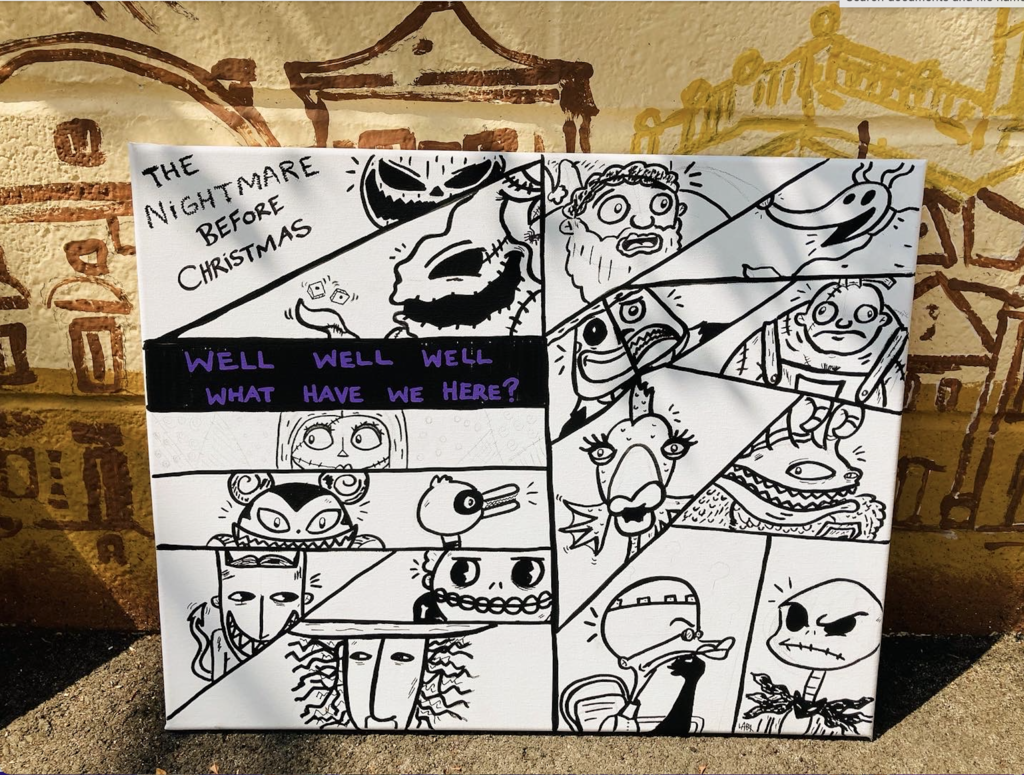 THE
NIGHTMARE
BEFORE
CHRISTMAS
WELL WELL WELL
WHAT HAVE WE HERE?